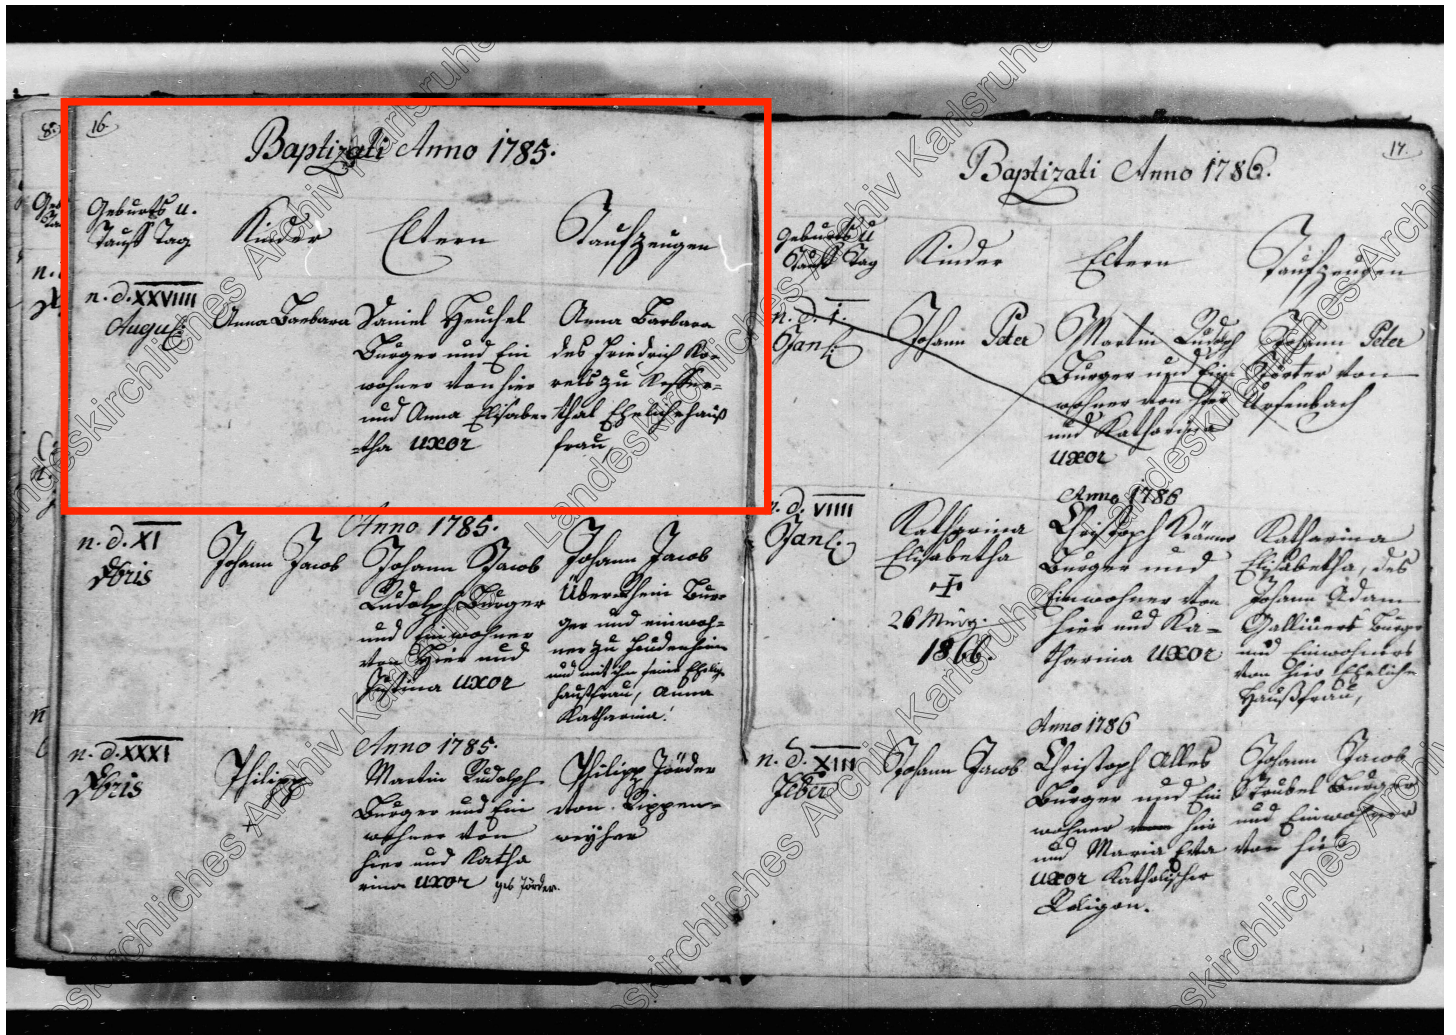 16.
Baptizati Anno 1785.
Geburts u.
Tauff Tag
Kinder
Eltern
Taufzeugen
n. d. XXVIIII
August:
Anna Barbara
Daniel Heuchel
Burger und Ein
wohner von hier
und Anna Elisabe-
=tha uxor
Anna Barbara
des Friedrich Ko-
rels zu Keffer-
thal Ehelichehauß
frau,
Anno 1785.
n. d. XI
Xbris
Johann Jacob
Johann Jacob
Rudolph Burger
und Einwohner
von Hier und
Justina uxor
Johann Jacob
Überrhein Bur-
ger und einwoh-
ner zu Feudenheim
und mit ihm seine Ehelige
haußfrau, Anna
Katharina.
Anno 1785.
n. d. XXXI
Xbris
Philipp
Martin Rudolph
Burger und Ein
wohner von
hier und Katha
rina uxor geb Jörder.
Philipp Jörder
von Rippen-
weyher
17.
Baptizati Anno 1786.
Geburts u
Tauff Tag
Kinder
Eltern
Taufzeugen
n. d. I.
Jan:
Johann Peter
Martin Rudolph
Burger und Ein
wohner von hier
und Katharina
uxor
Johann Peter
von
Ursenbach
Anno 1786
n. d. VIIII
Jan:
Katharina
Elisabetha
26 März.
1866.
Christoph Krämer
Burger und
Einwohner von
hier und Ka=
tharina uxor
Katharina
Elisabetha, des
Johann Adam
Burger
und Einwohners
von hier Eheliche
Haußfrau,
Anno 1786
n. d. XIII
Feber
Johann Jacob
Christoph Alles
Burger und Ein
wohner von hier
und Maria Eva
uxor Katholischer
Religion.
Johann Jacob
Treubel Burger
und Einwohner
von hier
Landeskirchliches Archiv Karlsruhe